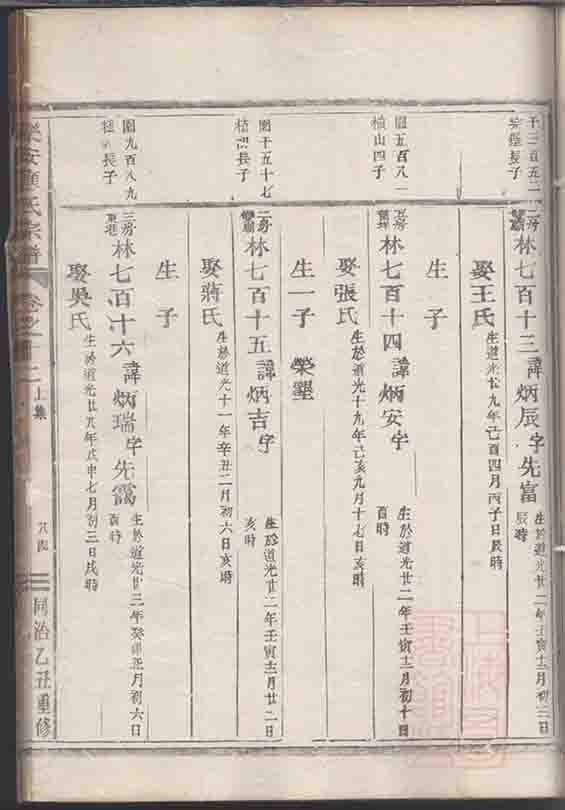 千三百五二
長子
二房
林七百十三諱炳辰字先富
生於道光廿二年壬寅十二月初二日
辰時
娶王氏
生道光九年己酉四月丙子日辰時
生子
園五百八一
四子
林七百十四諱炳安字
生於道光廿二年壬寅十二月初十日
酉時
娶張氏
生於道光十九年己亥九月十七日亥時
生一子 榮墾
園千五十七
長子
二房
林七百十五諱炳吉字
生於道光廿二年壬寅十二月廿二日
亥時
娶蔣氏
生於道光十一年辛丑二月初六日亥時
生子
園九百八九
長子
三房
林七百十六諱炳瑞字先靄
生於道光廿三年癸卯正月初六日
酉時
娶吳氏
生於道光廿八年戊申七月初三日戌時
氏宗譜
卷之
上集
八四
同治乙丑重修